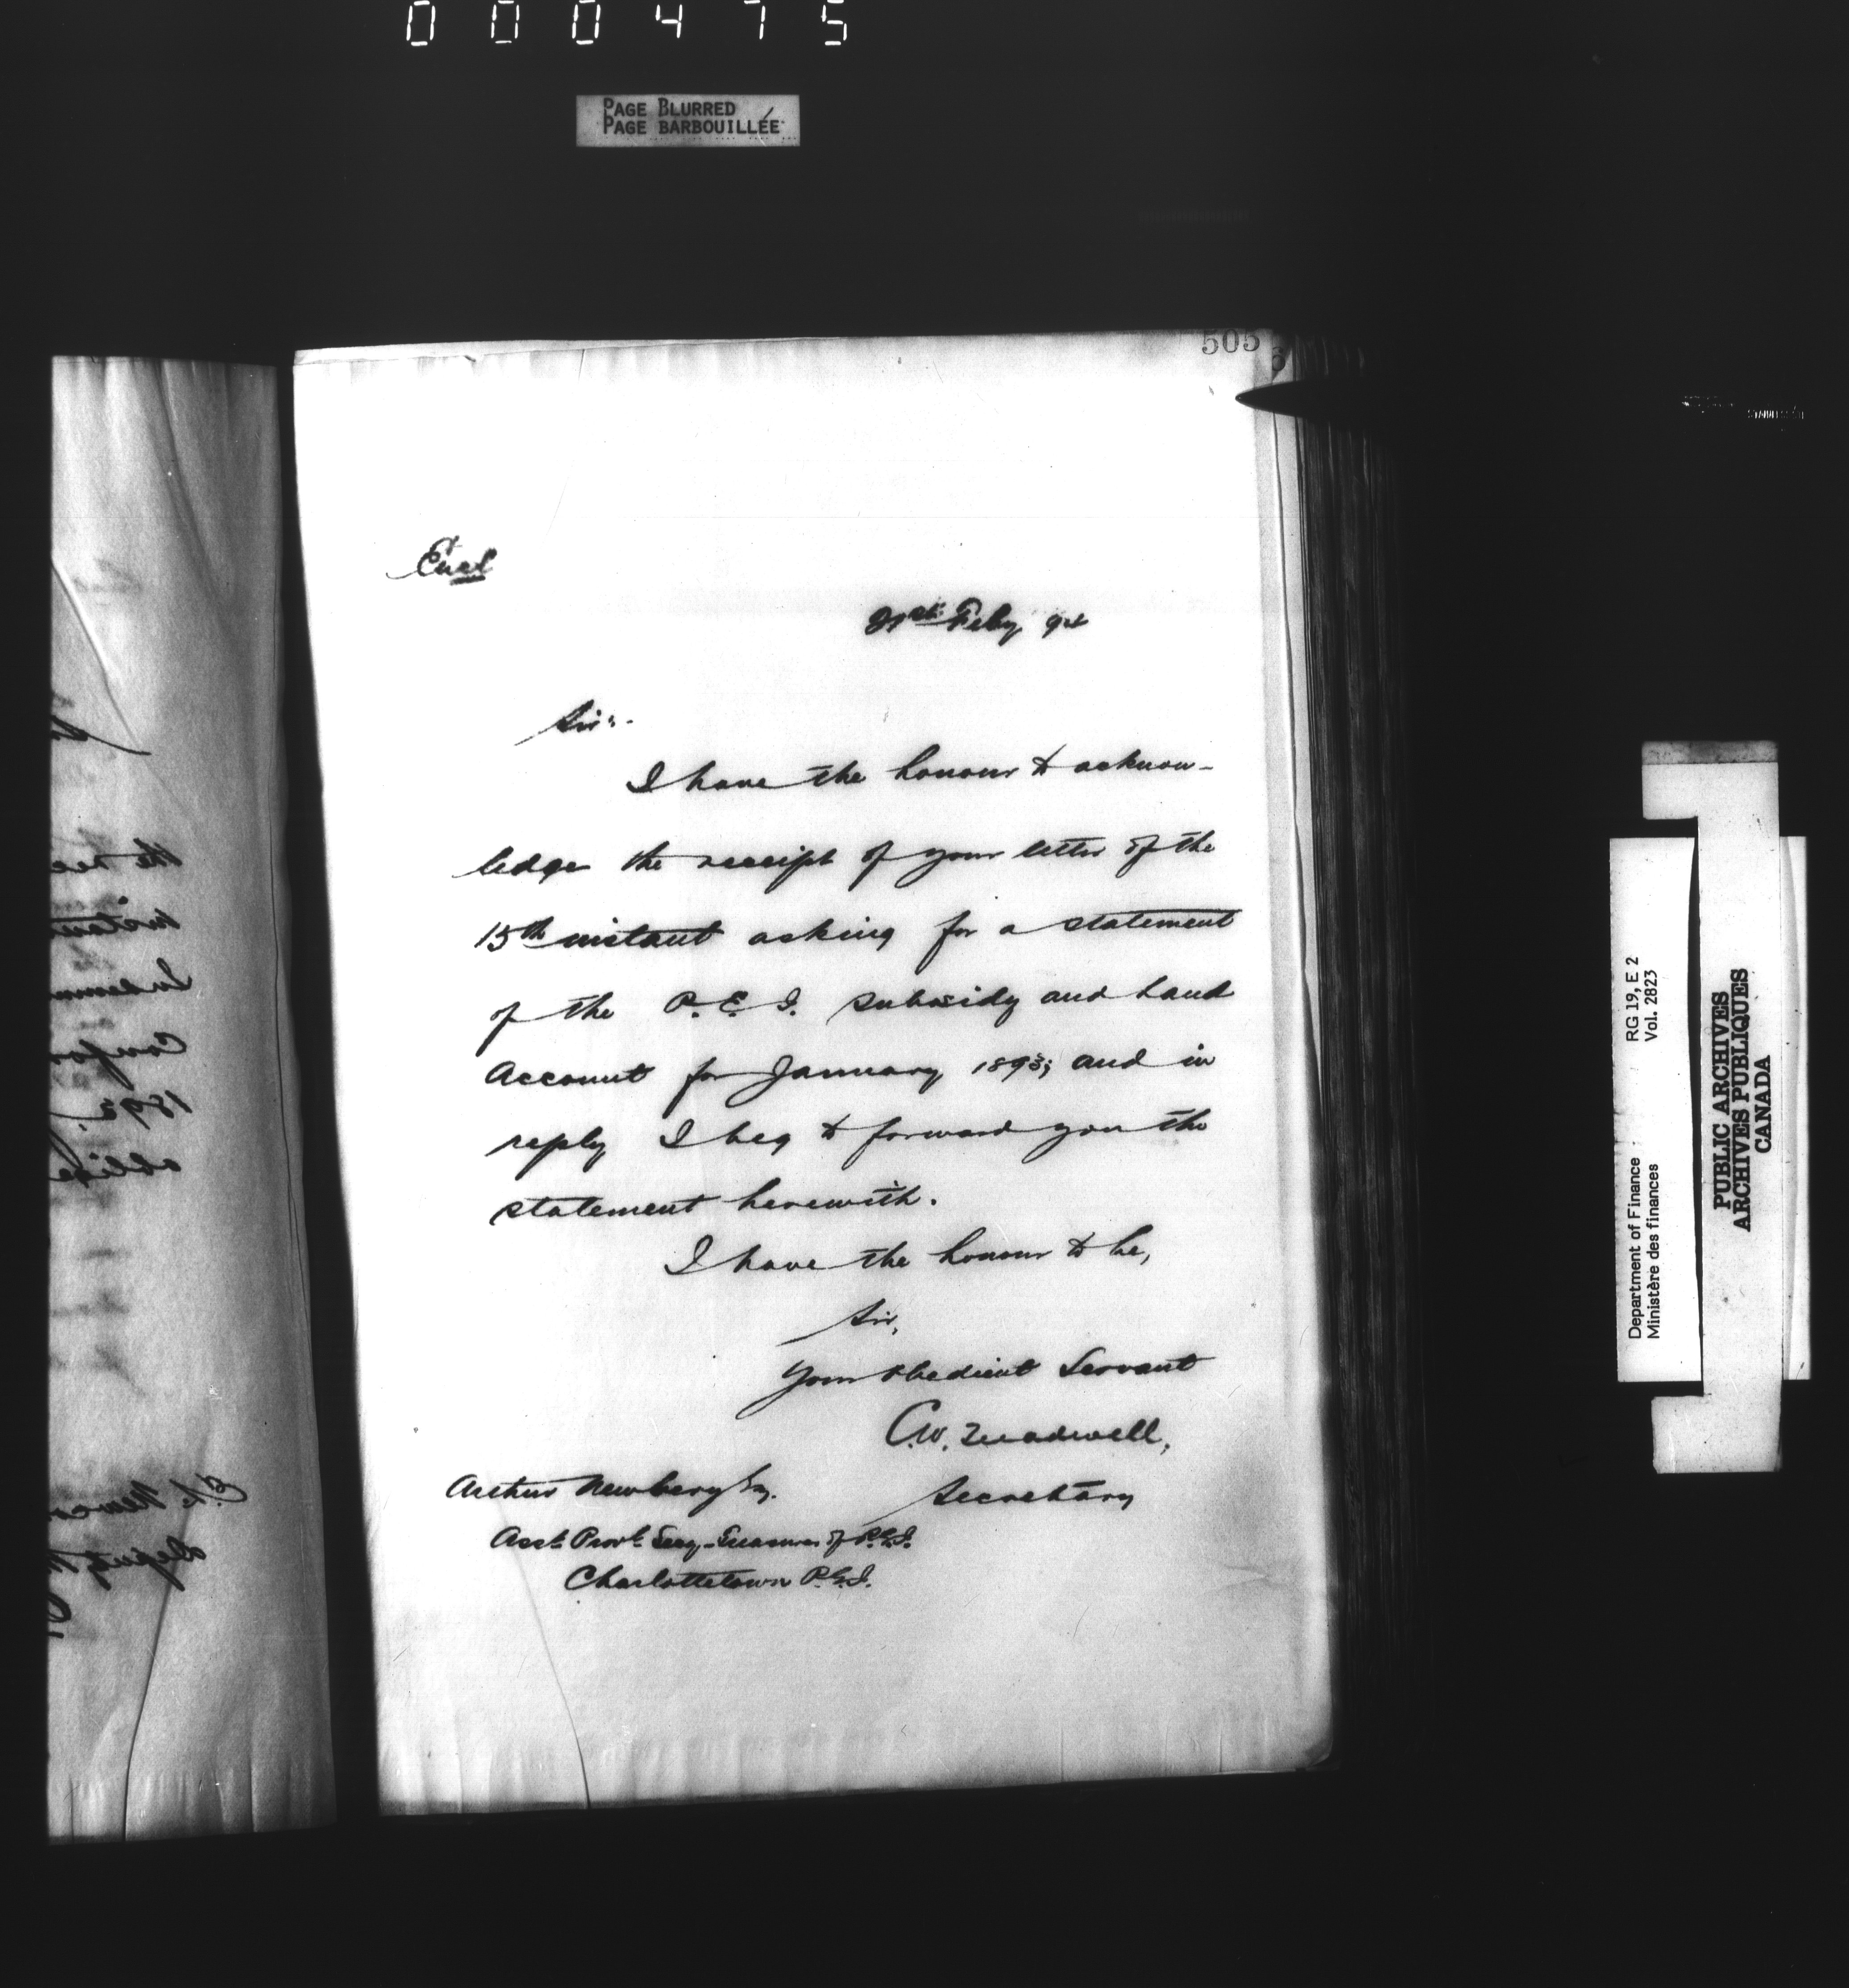 000475
PAGE BLURRED
PAGE BARBOUILLÉE
505
Encl
21st Feby 94
Sir:-
I have the honour to acknow-
ledge the receipt of your letter of the
15th instant asking for a statement
of the P.E.I. subsidy and Land
Account for January 1893; and in
reply I beg to forward you the
statement herewith.
I have the honour to be,
Sir,
Your obedient Servant
C.W. Treadwell,
Secretary
Arthur Newbery Esq.
Asst. Provl. Secy-Treasurer of P.E.I.
Charlottetown P.E.I.
Department of Finance RG 19, E 2
Ministère des finances Vol. 2823
PUBLIC ARCHIVES
ARCHIVES PUBLIQUES
CANADA